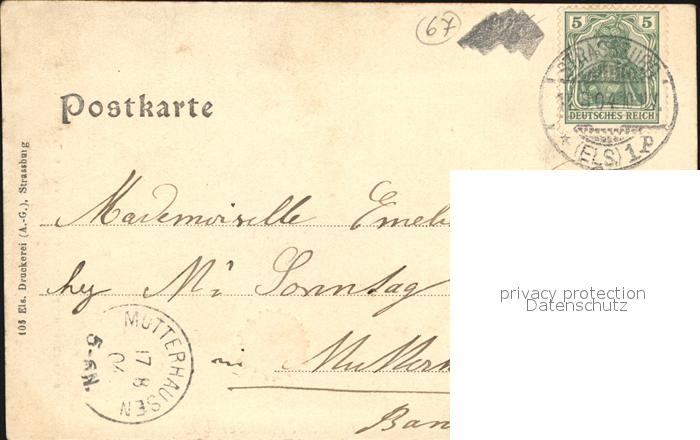 67
5 5
DEUTSCHES REICH
STRASSBURG
(ELS) 1P
Postkarte
105 Els. Druckerei (A.-G.), Strassburg
Mademoiselle
bey Mr Sonntag
in
MUTTERHAUSEN
17 8
04
5-6N.
privacy protection
Datenschutz